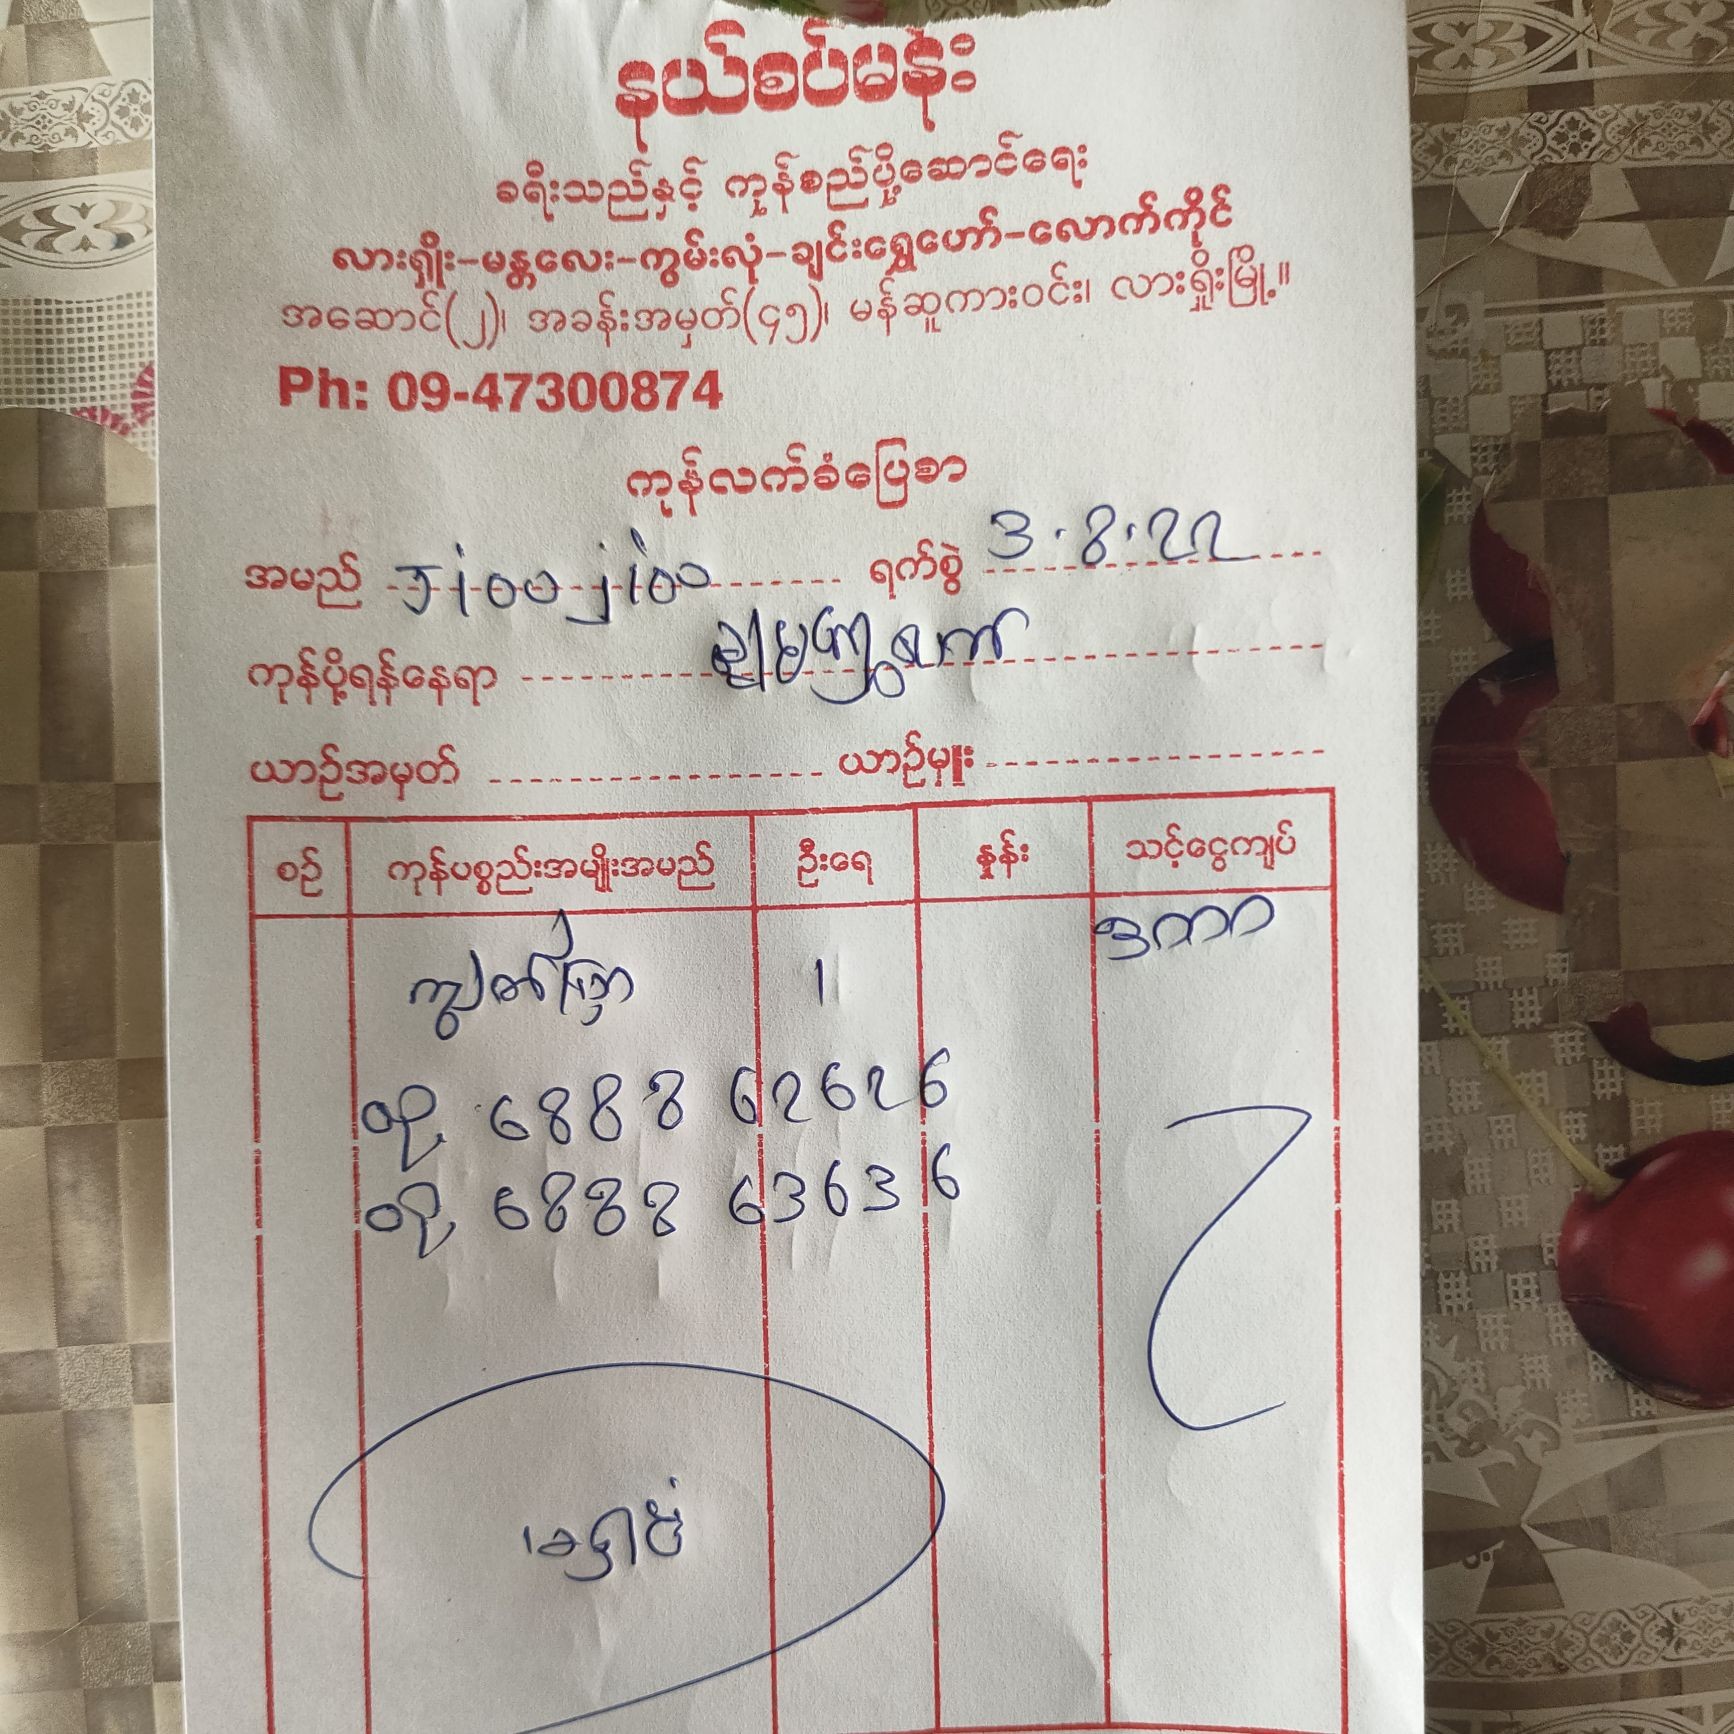 နယ်စပ်မန်း
ခရီးသည်နှင့် ကုန်စည်ပို့ဆောင်ရေး
လားရှိုး-မန္တလေး-ကွမ်းလုံ-ချင်းရွှေဟော်-လောက်ကိုင်
အဆောင်(၂)၊ အခန်းအမှတ်(၄၅)၊ မန်ဆူကားဝင်း၊ လားရှိုးမြို့။
Ph: 09-47300874
ကုန်လက်ခံပြေစာ
အမည် Jioo jioo ရက်စွဲ 3.8.22
ကုန်ပို့ရန်နေရာ
ယာဉ်အမှတ် ယာဉ်မှူး
စဉ် ကုန်ပစ္စည်းအမျိုးအမည် ဦးရေ နှုန်း သင့်ငွေကျပ်
1
တရုတ် 6888 62626
6888 63636